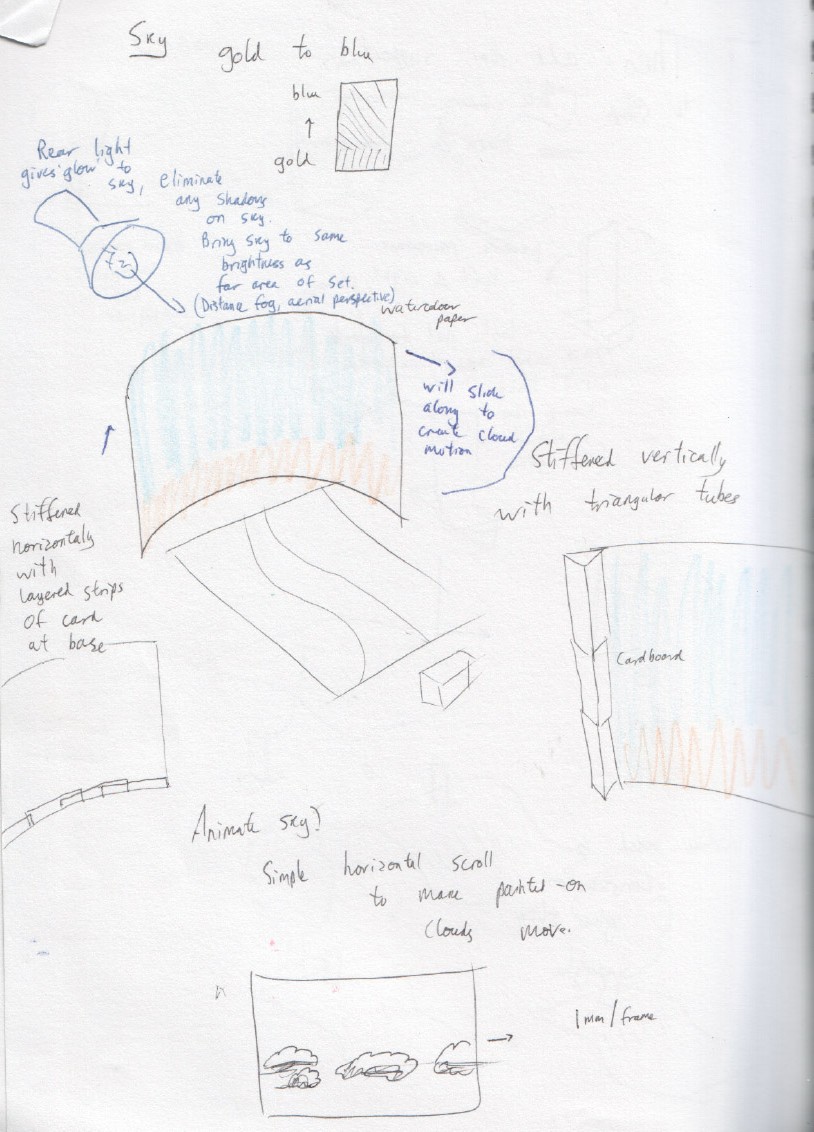 Sky
gold to blue
blue
gold
Rear light
gives 'glow' to
sky, eliminate
any shadows
on sky.
Bring sky to same
brightness as
far area of set.
(Distance fog, aerial perspective)
watercolour
paper
will slide
along to
create cloud
motion
Stiffened vertically
with triangular tubes
Stiffened
horizontaly
with
layered strips
of card
at base
Cardboard
Animate sky?
Simple horizontal scroll
to make painted-on
clouds move.
1mm/frame